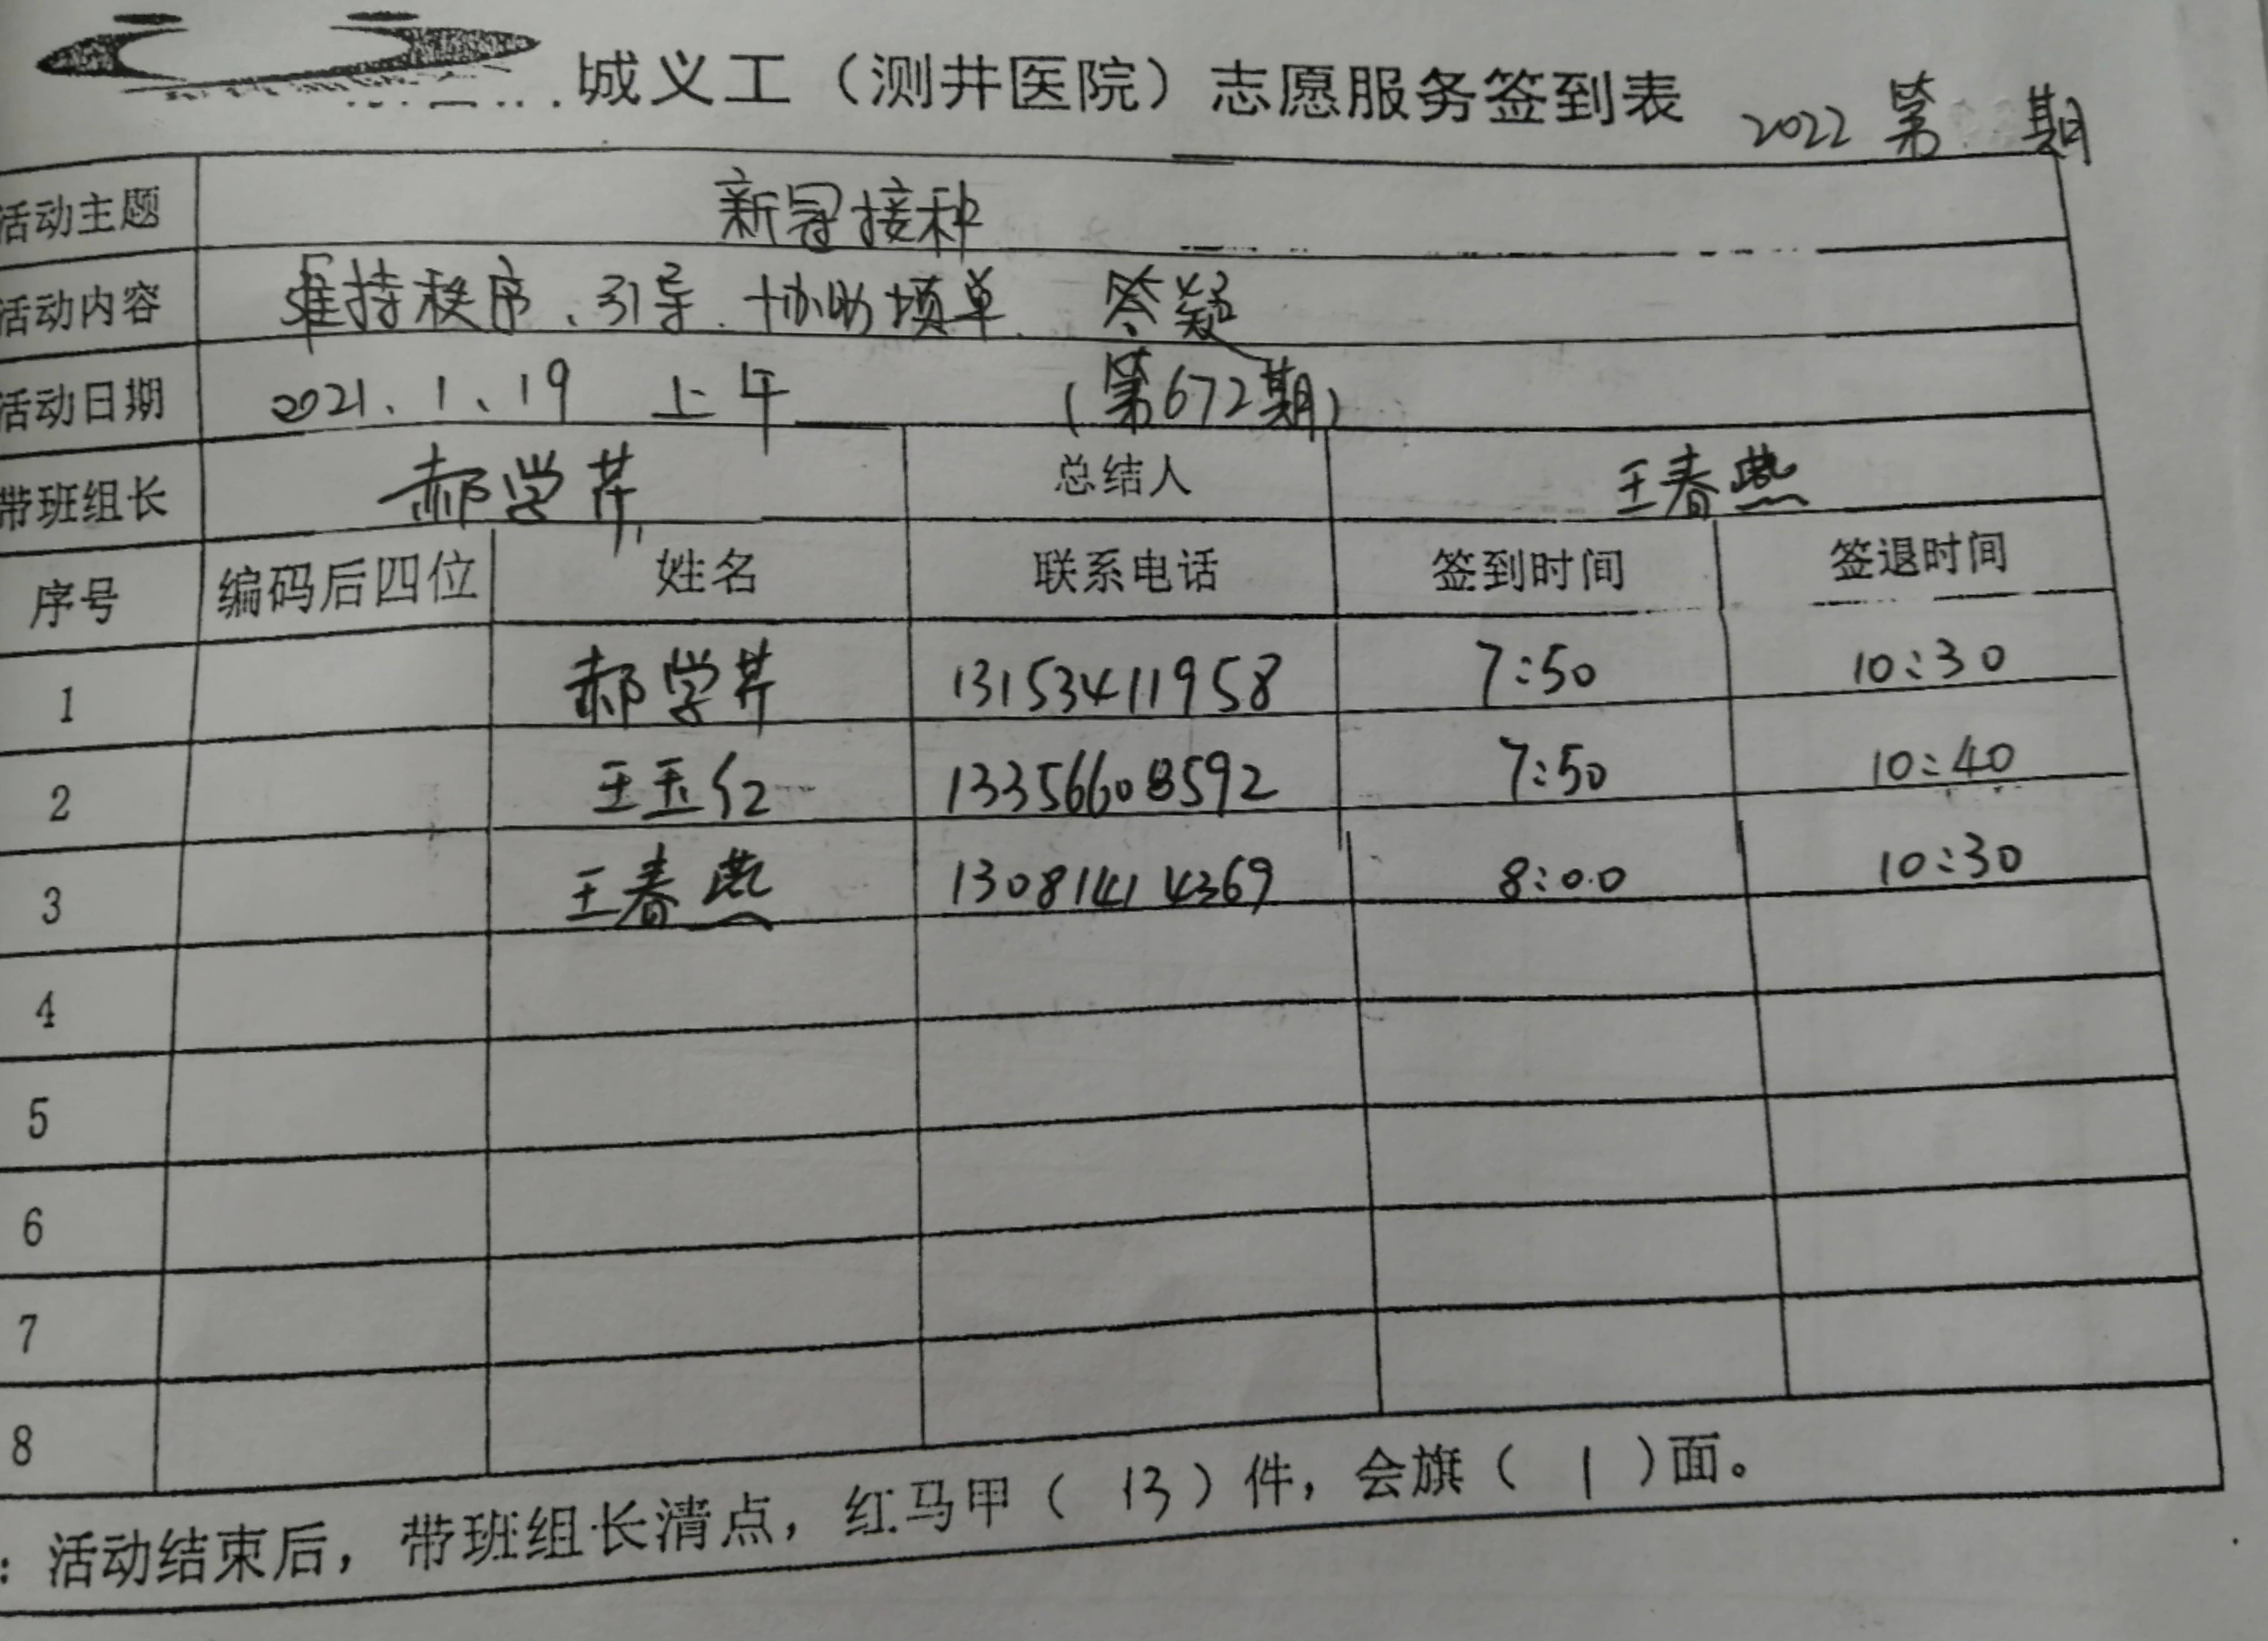 城义工（测井医院）志愿服务签到表 2022 第 期
活动主题 新冠接种
活动内容 维持秩序、引导、协助填单、答疑
活动日期 2021、1、19 上午 （第672期）
带班组长 郝学芹 总结人 王春燕
序号 编码后四位 姓名 联系电话 签到时间 签退时间
1 郝学芹 13153411958 7:50 10:30
2 王玉红 13356608592 7:50 10:40
3 王春燕 13081414369 8:00 10:30
4
5
6
7
8
：活动结束后，带班组长清点，红马甲（ 13 ）件，会旗（ 1 ）面。